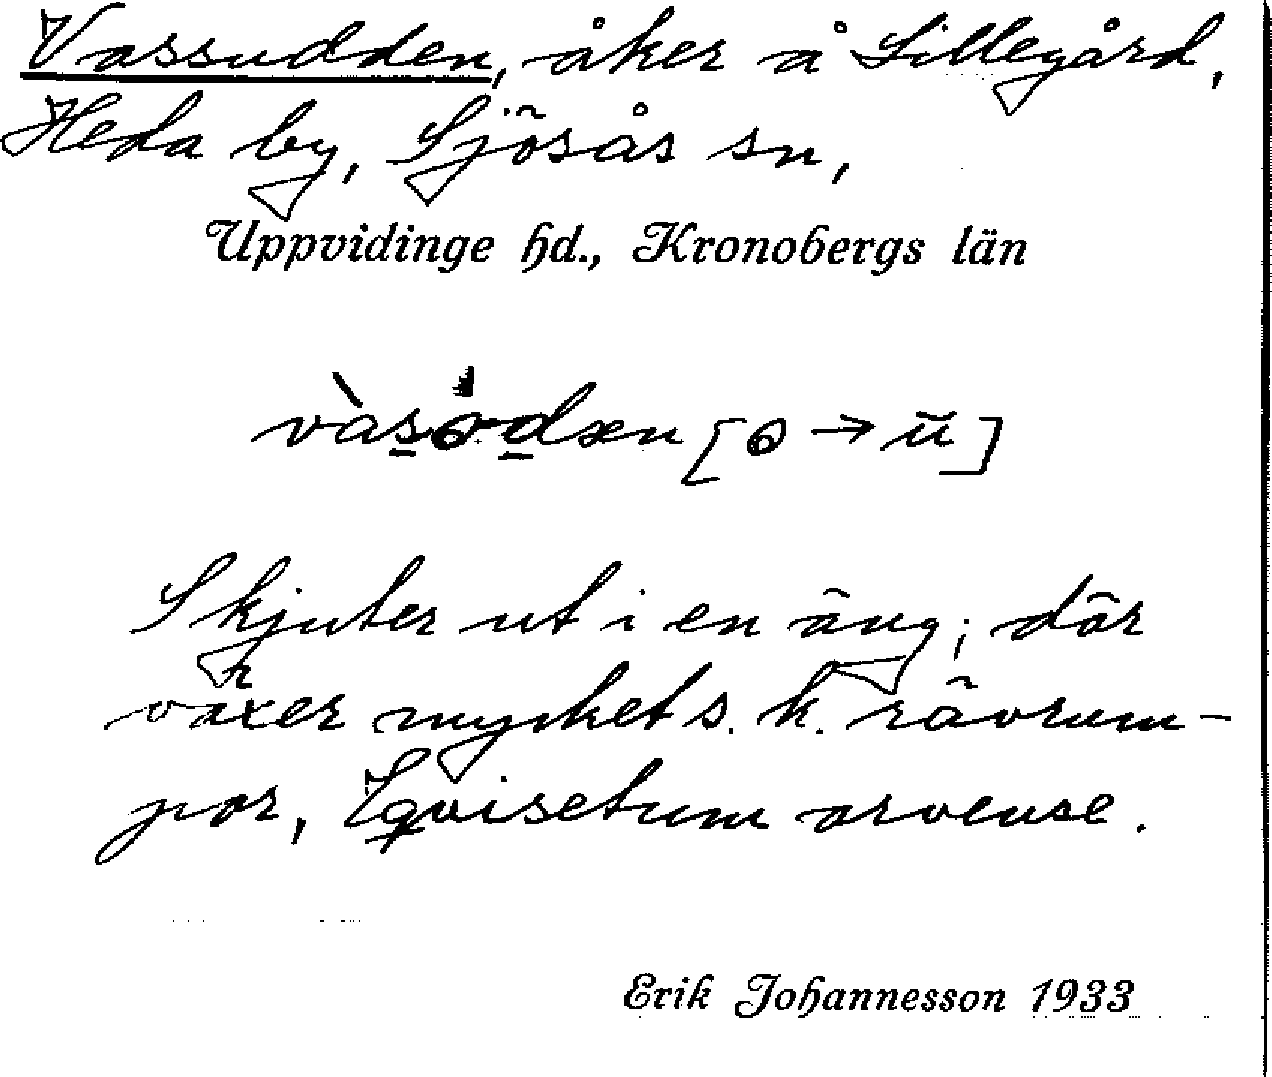 Vassudden, åker å Lillegård,
Heda by, Sjösås sn,
Uppvidinge hd., Kronobergs län
Skjuter ut i en äng; där
växer mycket s. k. rävrum-
por, Eqvisetum arvense.
Erik Johannesson 1933